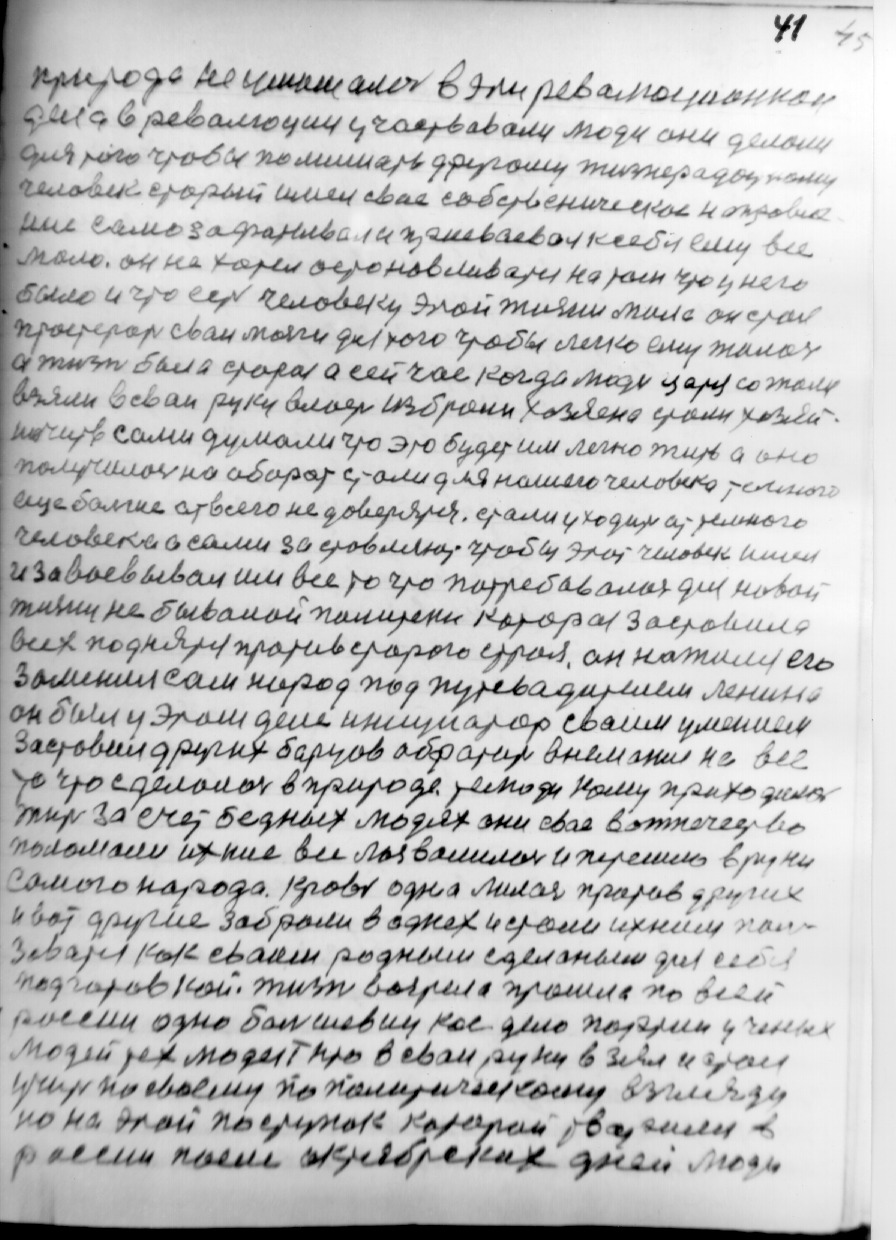 41 45
природа не умошалоч в эти революционнои
дела в революции участвавали люди они делали
для того чтобы помишать другому жизнерадоу ному
человек старый имел свае собственическое направле-
ние само захватывал и присваевал к себя ему все
мало. он не хотел остонавливатя на том что у него
было и что сеть человеку этой жизни мила он стал
простерать сваи мозги для того чтобы легко ему жилоч
а жизн была старая а сейчас когда люди царя сожгали
взяли в сваи руки власть избрани хозяена стали хозяй-
ничить сами думали что это будет им легко жить а оно
получилоч на оборот стали для нашего человека темного
еще болше от всего не доверятя. стали уходить от темного
человека а сами заставляют чтобы этот человек имел
и завоевывал им все то что потребавалоч для новой
жизни не бывалой политеки каторая заставила
всех поднятя против старого строя. он нажился его
заменил сам народ под путевадителем Ленина
он был у этом деле инициатор сваим умением
заставил других барцов обратить внемание на все
то что сделолоч в природе. те люди кому приходилоч
жить за счет бедных людях они свае в'отпечество
поломали ихние все лозвалилоч и перешло в руки
самого народа. Кровь одна лилач протов других
и вот другие забрали в однех и стали ихним пол-
зоватя как сваем родными сделаным для себя
подготовкой. жизн возрела прошла по всей
россии одно болшевицкое дело портии ученых
людей тех людеят кто в сваи руки взял и стал
учить по своему по политическому взгляду
но на этой поступок каторой творили в
россии после октябрских дней люди